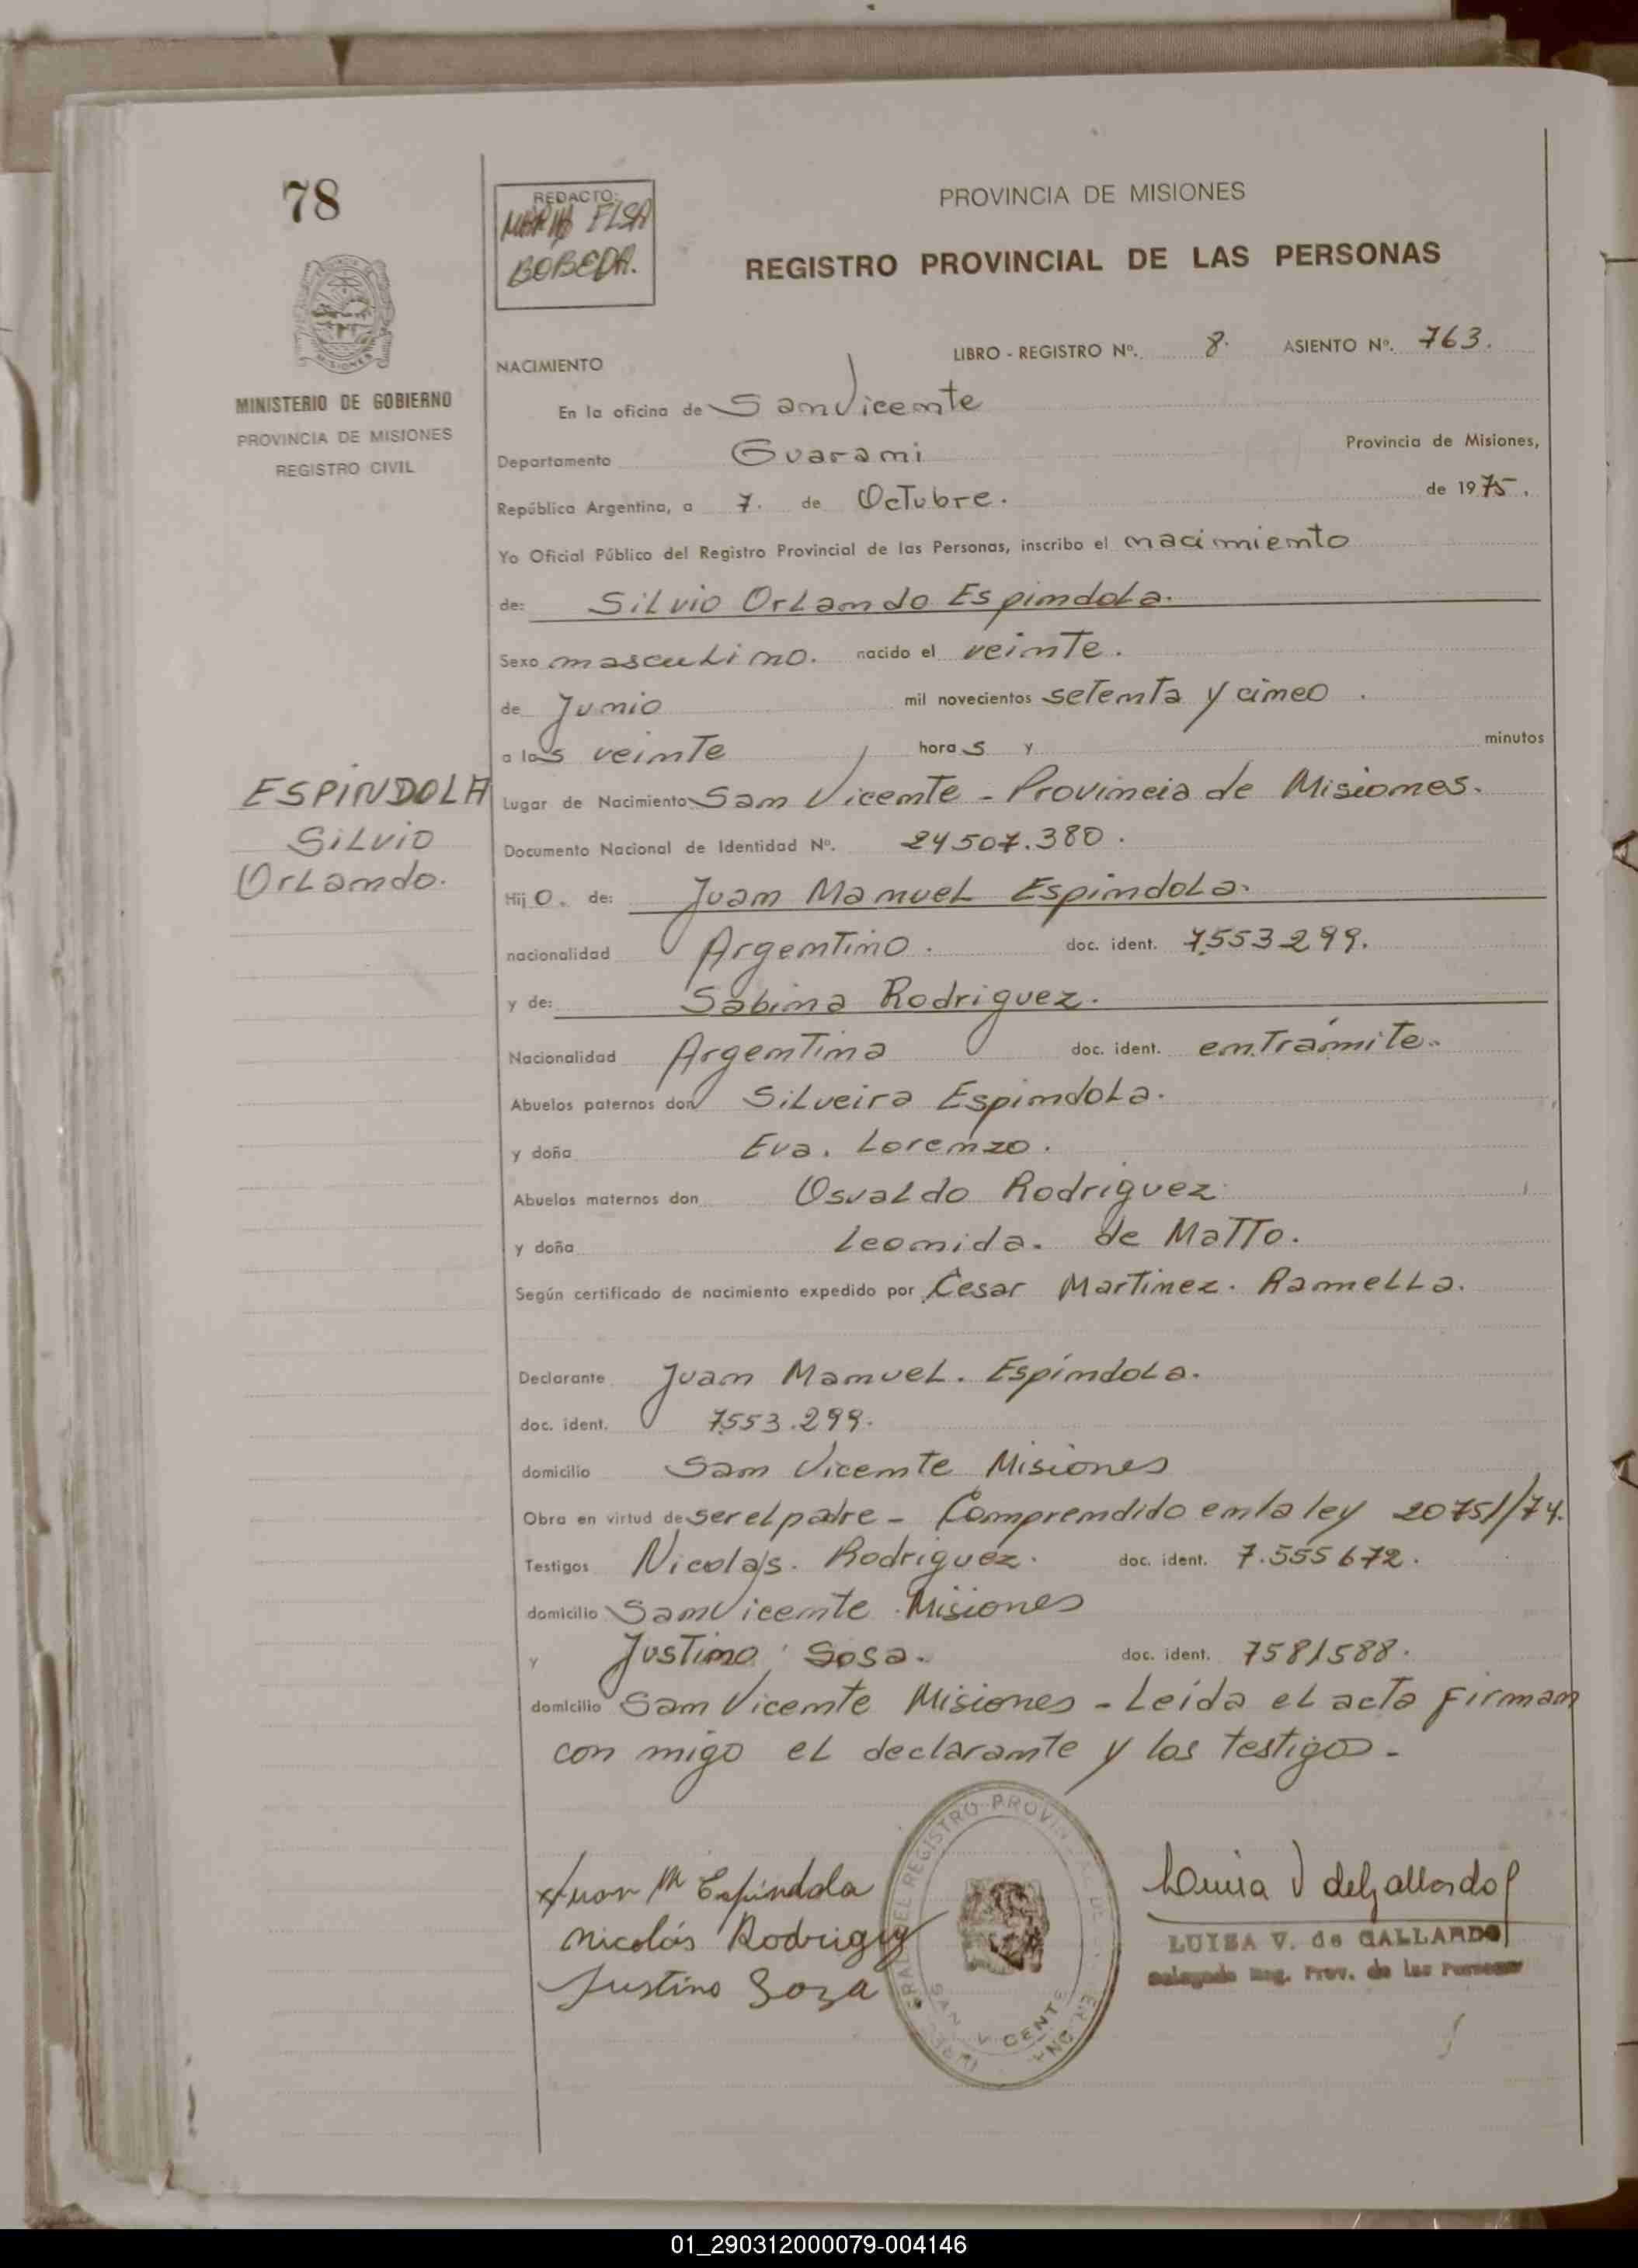 78
REDACTO:
MARIA ELSA
BOBEDA.
PROVINCIA DE MISIONES
REGISTRO PROVINCIAL DE LAS PERSONAS
MISIONES
MINISTERIO DE GOBIERNO
PROVINCIA DE MISIONES
REGISTRO CIVIL
NACIMIENTO
LIBRO - REGISTRO Nº. 8. ASIENTO Nº. 763.
En la oficina de San Vicente
Departamento Guarani Provincia de Misiones,
República Argentina, a 7. de Octubre. de 1975.
Yo Oficial Público del Registro Provincial de las Personas, inscribo el nacimiento
de: Silvio Orlando Espindola.
Sexo masculino. nacido el veinte.
de Junio mil novecientos setenta y cinco.
a las veinte horas y minutos
ESPÍNDOLA
Silvio
Orlando.
Lugar de Nacimiento San Vicente - Provincia de Misiones.
Documento Nacional de Identidad Nº. 24507.380.
Hijo. de: Juan Manuel Espindola.
nacionalidad Argentino. doc. ident. 7.553299.
y de: Sabina Rodriguez.
Nacionalidad Argentina doc. ident. en trámite.
Abuelos paternos don Silveira Espindola.
y doña Eva. Lorenzo.
Abuelos maternos don Osvaldo Rodriguez
y doña Leonida. de Matto.
Según certificado de nacimiento expedido por Cesar Martinez. Ramella.
Declarante Juan Manuel. Espíndola.
doc. ident. 7.553.299.
domicilio San Vicente Misiones
Obra en virtud de ser el padre - Comprendido en la ley 20751/74.
Testigos Nicolas. Rodriguez. doc. ident. 7.555672.
domicilio San Vicente Misiones
y Justino Sosa. doc. ident. 7581588.
domicilio San Vicente Misiones - Leída el acta firman
con migo el declarante y los testigos -
Juan M Espíndola
Nicolás Rodriguez
Justino Soza
SAN VICENTE
Luisa V de Gallardo
LUISA V. de GALLARDO
Delegada Reg. Prov. de las Personas
01_290312000079-004146